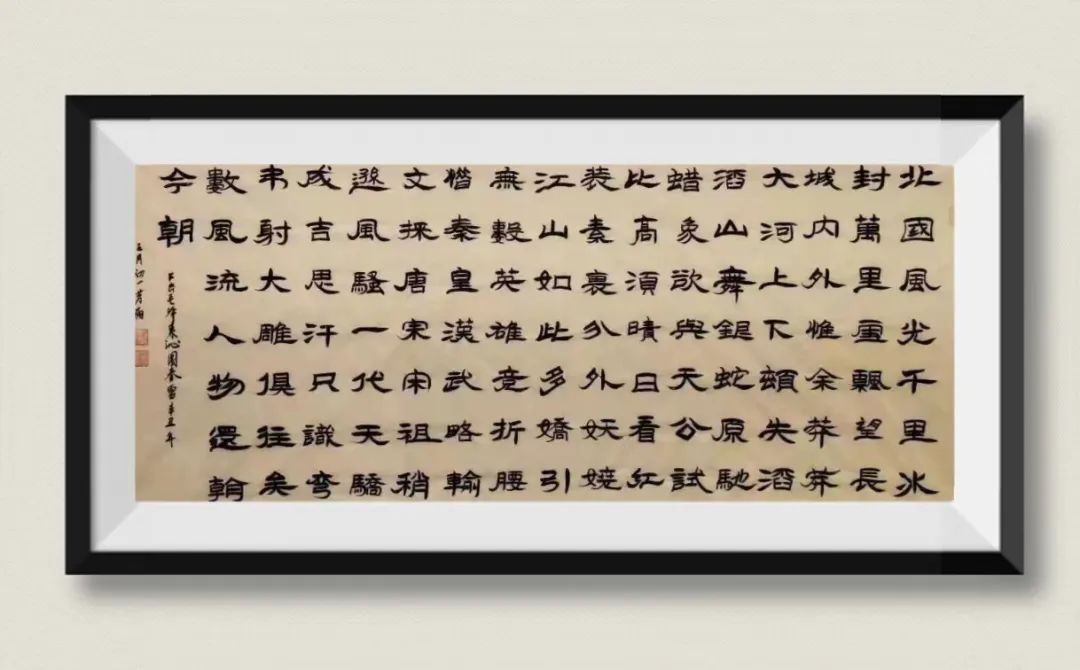 北國風光千里冰
封萬里雪飄望長
城内外惟余莽莽
大河上下頓失滔
滔山舞銀蛇原馳
蜡象欲與天公試
比高須晴日看红
装素裹分外妖娆
江山如此多嬌引
無數英雄竞折腰
惜秦皇漢武略輸
文採唐宗宋祖稍
遜風騷一代天驕
成吉思汗只識彎
弓射大雕俱往矣
數風流人物還
今朝
毛泽東沁園春雪辛丑年
五月初一